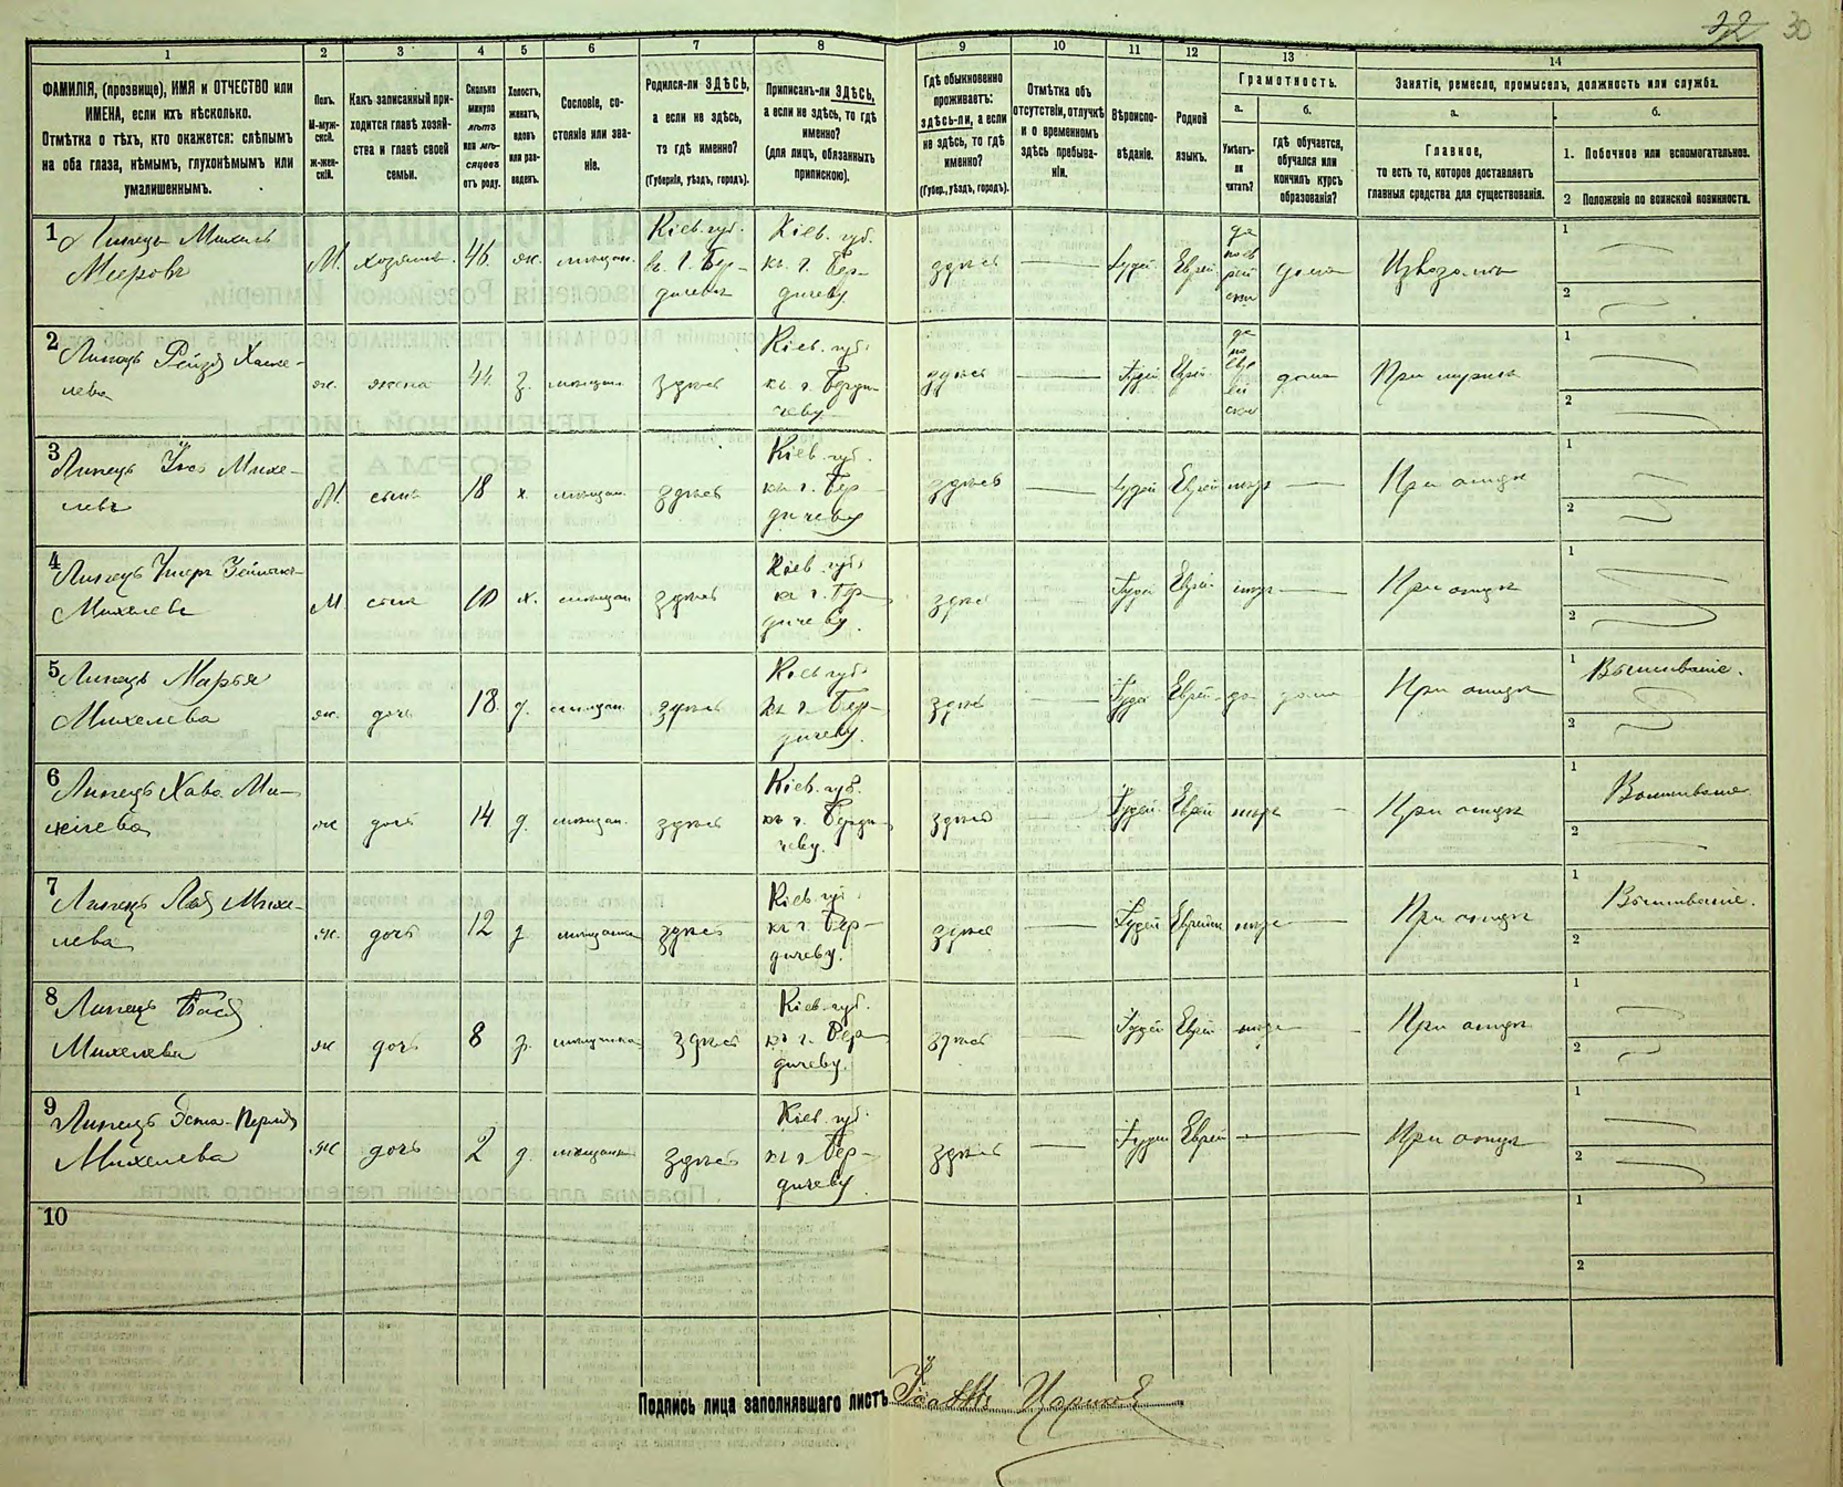 32 30
1 2 3 4 5 6 7 8 9 10 11 12 13 14
ФАМИЛІЯ, (прозвище), ИМЯ и ОТЧЕСТВО или
ИМЕНА, если ихъ нѣсколько.
Отмѣтка о тѣхъ, кто окажется: слѣпымъ
на оба глаза, нѣмымъ, глухонѣмымъ или
умалишеннымъ.
Полъ.
М-муж-
ской.
Ж-жен-
скій.
Какъ записанный при-
ходится главѣ хозяй-
ства и главѣ своей
семьи.
Сколько
минуло
лѣтъ
или мѣ-
сяцевъ
отъ роду.
Холостъ,
женатъ,
вдовъ
или раз-
веденъ.
Сословіе, со-
стояніе или зва-
ніе.
Родился-ли ЗДѢСЬ,
а если не здѣсь,
то гдѣ именно?
(Губернія, уѣздъ, городъ).
Приписанъ-ли ЗДѢСЬ,
а если не здѣсь, то гдѣ
именно?
(для лицъ, обязанныхъ
припискою).
Гдѣ обыкновенно
проживаетъ:
здѣсь-ли, а если
не здѣсь, то гдѣ
именно?
(Губер., уѣздъ, городъ).
Отмѣтка объ
отсутствіи, отлучкѣ
и о временномъ
здѣсь пребыва-
ніи.
Вѣроиспо-
вѣданіе.
Родной
языкъ.
Грамотность.
а.
Умѣетъ-
ли
читать?
б.
гдѣ обучается,
обучался или
кончилъ курсъ
образованія?
Занятіе, ремесло, промыселъ, должность или служба.
а.
Главное,
то есть то, которое доставляетъ
главныя средства для существованія.
б.
1. Побочное или вспомогательное.
2 Положеніе по воинской повинности.
1 Липецъ Михель
Мееровъ
М. хозяинъ. 46. ж. мѣщан.
Кіев. губ.
въ г. Бер-
дичевѣ
Кіев. губ.
къ г. Бер-
дичеву
здѣсь Іудей Еврей
да
по ев
рей
ски
дома Извозомъ
1
2
2 Липецъ Рейзя Хаске-
лева
ж. жена 44. з. мѣщан. здѣсь
Кіев. губ.
къ г. Берди-
чеву
здѣсь Іудей Еврей
да
по
евре
йски
дома При мужѣ
1
2
3 Липецъ Михе-
левъ
М. сынъ 18 х. мѣщан. здѣсь
Кіев. губ.
къ г. Бер-
дичеву
здѣсь Іудей Еврей При отцѣ
1
2
4 Липецъ
Михелевъ
М сынъ 10 х. мѣщан здѣсь
Кіев. губ.
къ г. Бер-
дичеву.
здѣсь Іудей Еврей При отцѣ
1
2
5 Липецъ Марья
Михелева
ж. дочь 18. д. мѣщан. здѣсь
Кіев губ.
къ г. Бер-
дичеву.
здѣсь Іудей Еврей да дома При отцѣ
1 Вышиваніе.
2
6 Липецъ Хава Ми-
хелева
ж дочь 14 д. мѣщан. здѣсь
Кіев. губ.
къ г. Берди-
чеву.
здѣсь Іудей Еврей При отцѣ
1 Вышиваніе
2
7 Липецъ Лея Михе-
лева
ж. дочь 12 д. мѣщанка здѣсь
Кіев. губ.
къ г. Бер-
дичеву.
здѣсь Іудей Еврейск При отцѣ
1 Вышиваніе.
2
8 Липецъ Бася
Михелева
ж дочь 8 д. мѣщанка здѣсь
Кіев. губ.
къ г. Бер
дичеву.
здѣсь Іудей Еврей При отцѣ
1
2
9 Липецъ Эстя-Перля
Михелева
ж дочь 2 д. мѣщанка здѣсь
Кіев. губ.
къ г. Бер-
дичеву.
здѣсь Іудей Еврей При отцѣ
1
2
10
1
2
Подпись лица заполнявшаго листъ